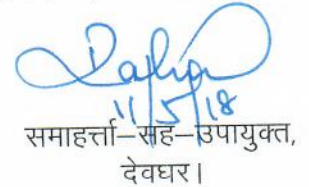 11/5/18
समाहर्त्ता–सह–उपायुक्त,
देवघर।